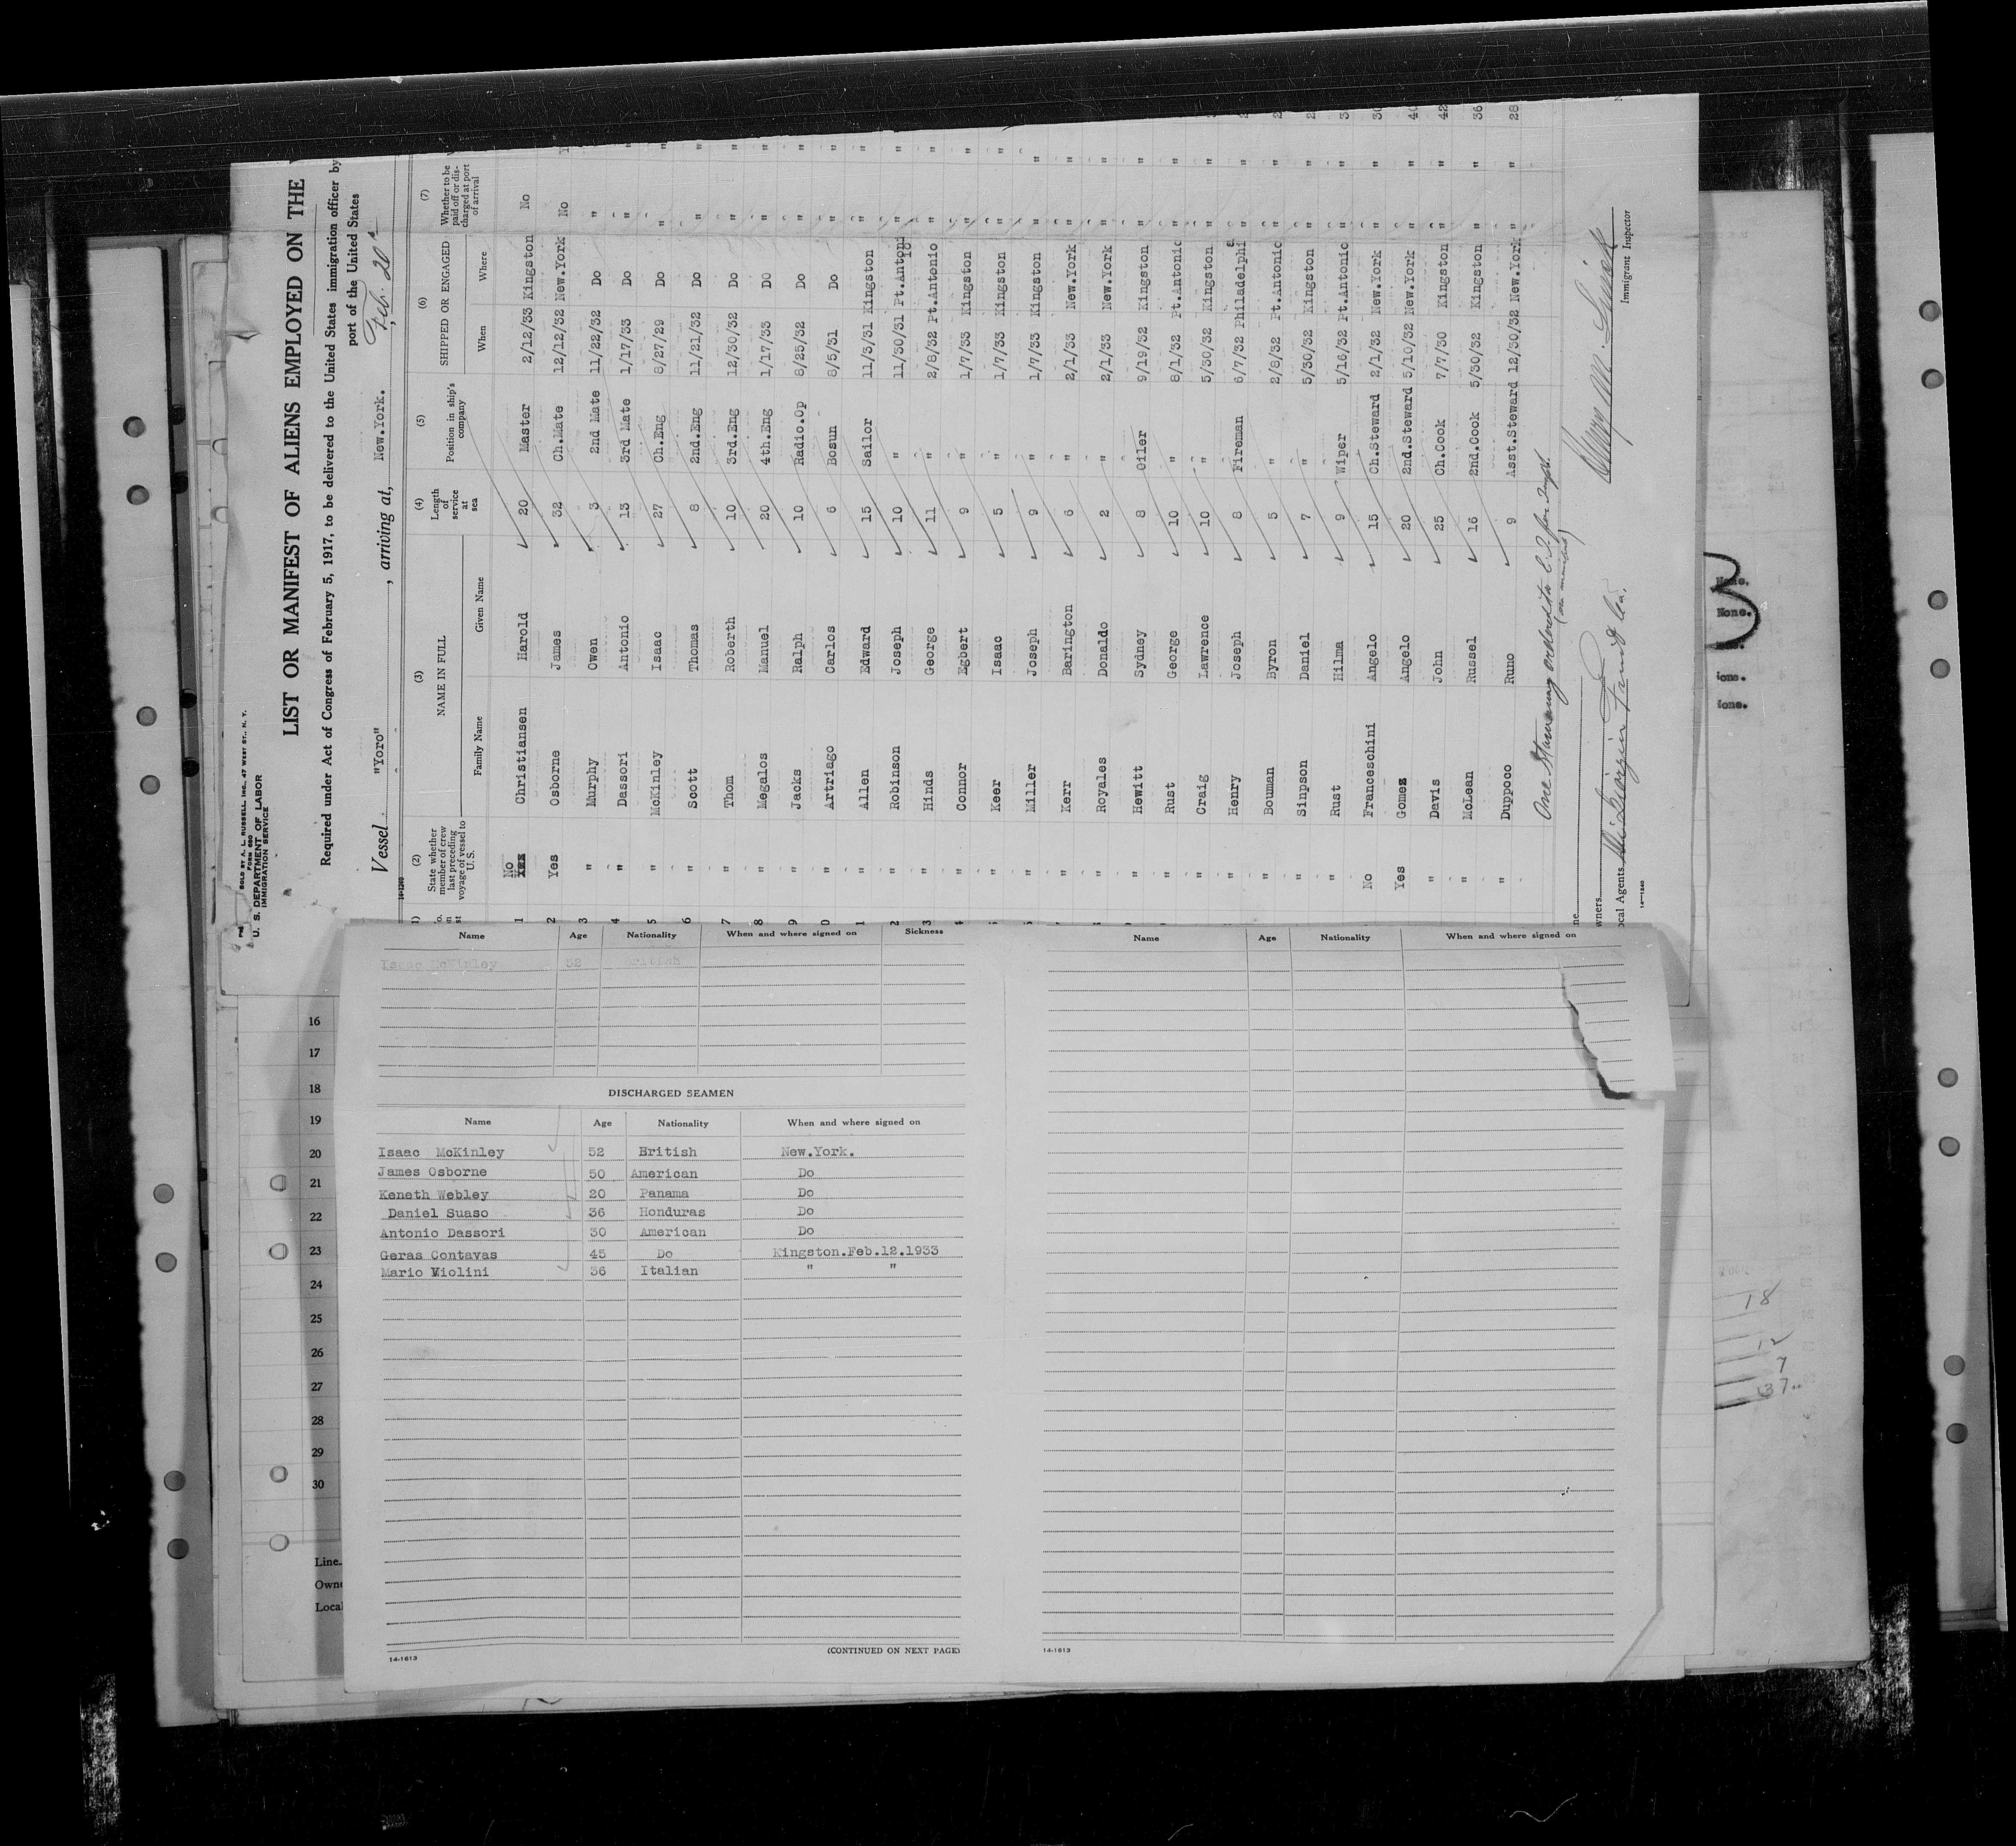 SOLD BY A. L. RUSSELL, Inc., 47 WEST ST., N. Y.
FORM 680
U. S. DEPARTMENT OF LABOR
IMMIGRATION SERVICE
LIST OR MANIFEST OF ALIENS EMPLOYED ON THE
Required under Act of Congress of February 5, 1917, to be delivered to the United States immigration officer by
port of the United States
Vessel "Yoro" , arriving at, New.York. , Feb. 20
(2) (3) (4) (5) (6) (7)
State whether member of crew last preceding voyage of vessel to U.S. NAME IN FULL Length of service at sea Position in ship's company SHIPPED OR ENGAGED Whether to be paid off or discharged at port of arrival
Family Name Given Name When Where
1 No Yes Christiansen Harold 20 Master 2/12/33 Kingston No
2 Yes Osborne James 32 Ch.Mate 12/12/32 New.York No
3 " Murphy Owen 3 2nd Mate 11/22/32 Do "
4 " Dassori Antonio 13 3rd Mate 1/17/33 Do " "
5 " McKinley Isaac 27 Ch.Eng 8/27/29 Do " "
6 " Scott Thomas 8 2nd.Eng 11/21/32 Do " "
7 " Thom Roberth 10 3rd.Eng 12/30/32 Do " "
8 " Megalos Manuel 20 4th.Eng 1/17/33 Do " "
9 " Jacks Ralph 10 Radio.Op 8/25/32 Do " "
0 " Artriago Carlos 6 Bosun 8/5/31 Do " "
1 " Allen Edward 15 Sailor 11/3/31 Kingston " "
2 " Robinson Joseph 10 " 11/30/31 Pt.Antonio " "
3 " Hinds George 11 " 2/8/32 Pt.Antonio " "
4 " Connor Egbert 9 " 1/7/33 Kingston " "
" Keer Isaac 5 " 1/7/33 Kingston " "
" Miller Joseph 9 " 1/7/33 Kingston " "
" Kerr Barington 6 " 2/1/33 New.York " "
" Royales Donaldo 2 " 2/1/33 New.York " "
" Hewitt Sydney 8 Oiler 9/19/32 Kingston " "
" Rust George 10 " 8/1/32 Pt.Antonio " "
" Craig Lawrence 10 " 5/30/32 Kingston " "
" Henry Joseph 8 Fireman 6/7/32 Philadelphia " "
" Bouman Byron 5 " 2/8/32 Pt.Antonio " "
" Sinpson Daniel 7 " 5/30/32 Kingston " "
" Rust Hilma 9 Wiper 5/16/32 Pt.Antonio " "
No Franceschini Angelo 15 Ch.Steward 2/1/32 New.York " "
Yes Gomez Angelo 20 2nd.Steward 5/10/32 New.York " "
" Davis John 25 Ch.Cook 7/7/30 Kingston " " 42
" McLean Russel 16 2nd.Cook 5/30/32 Kingston " " 36
" Duppoco Runo 9 Asst.Steward 12/30/32 New.York " " 28
One
Immigrant Inspector
Local Agents
14—1240
Name Age Nationality When and where signed on Sickness
Isaac McKinley 52 British
DISCHARGED SEAMEN
Name Age Nationality When and where signed on
Isaac McKinley 52 British New.York.
James Osborne 50 American Do
Keneth Webley 20 Panama Do
Daniel Suaso 36 Honduras Do
Antonio Dassori 30 American Do
Geras Contavas 45 Do Kingston.Feb.12.1933
Mario Violini 36 Italian " "
(CONTINUED ON NEXT PAGE)
14-1613
Name Age Nationality When and where signed on
14-1613
16
17
18
19
20
21
22
23
24
25
26
27
28
29
30
Line
Owne
Local
None.
None.
18
12
7
37